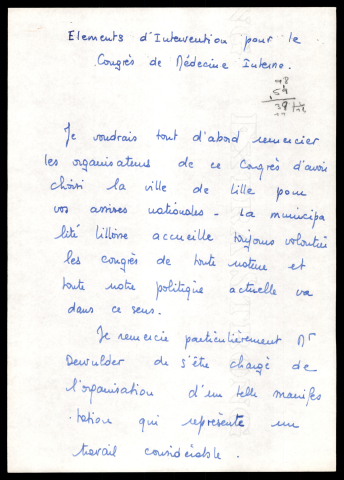 Elements d'Intervention pour le
Congrès de Médecine Interne.
98
54
39
Je voudrais tout d'abord remercier
les organisateurs de ce Congrès d'avoir
choisi la ville de Lille pour
vos assises nationales - La municipa
lité lilloise accueille toujours volontiers
les congrès de toute nature et
toute notre politique actuelle va
dans ce sens.
Je remercie particulièrement Mr
Dewulder de s'être chargé de
l'organisation d'une telle manifes
tation qui représente un
travail considérable.